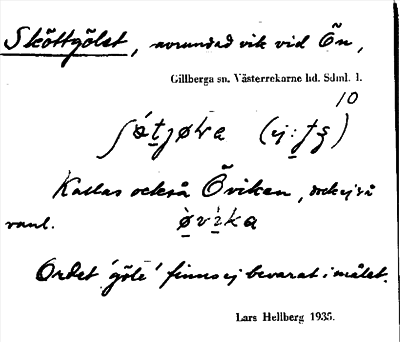 Sköttgölet, avrundad vik vid Ön,
Gillberga sn. Västerrekarne hd. Sdml. 1.
10
(ej:
Kallas också Öviken, dock ej så
vanl.
Ordet 'göle' finns ej bevarat i målet.
Lars Hellberg 1935.